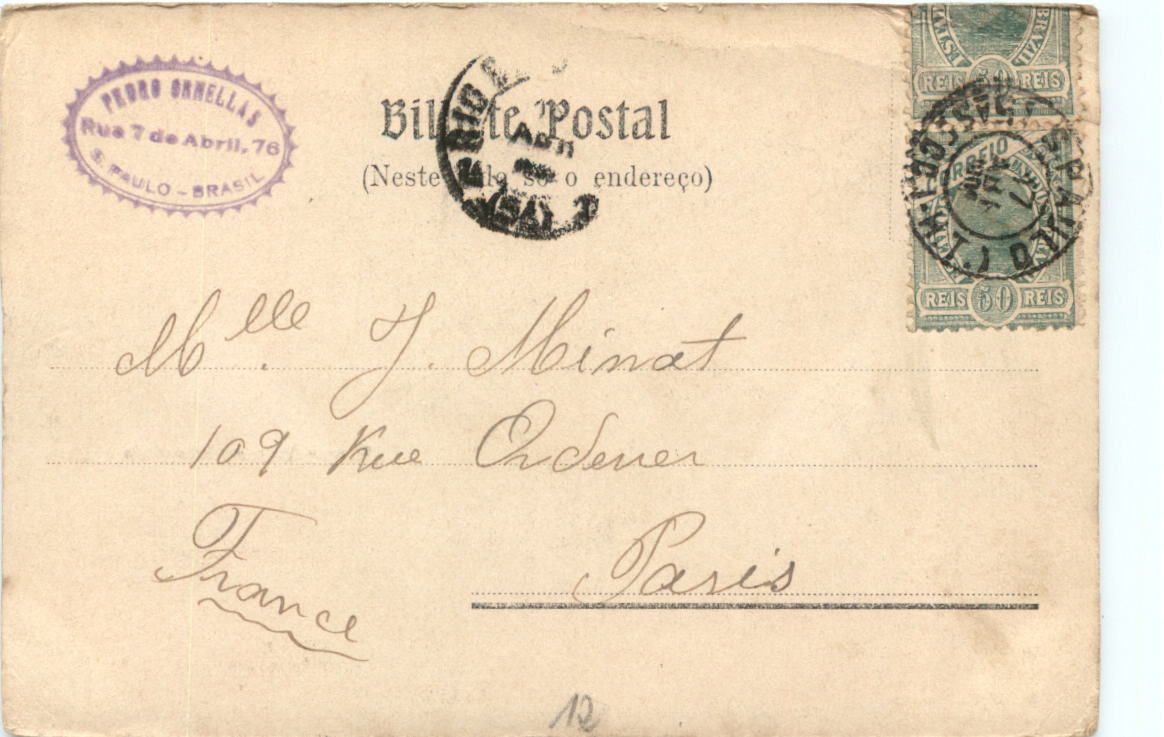 PEDRO ORNELLAS
Rua 7 de Abril, 76
S. PAULO - BRASIL
Bilhete Postal
(Neste lado só o endereço)
BRAZIL
REIS 50 REIS
CORREIO
REIS 50 REIS
S. PAULO
Mlle. J. Minat
109 Rue Ordener
Paris
France
12